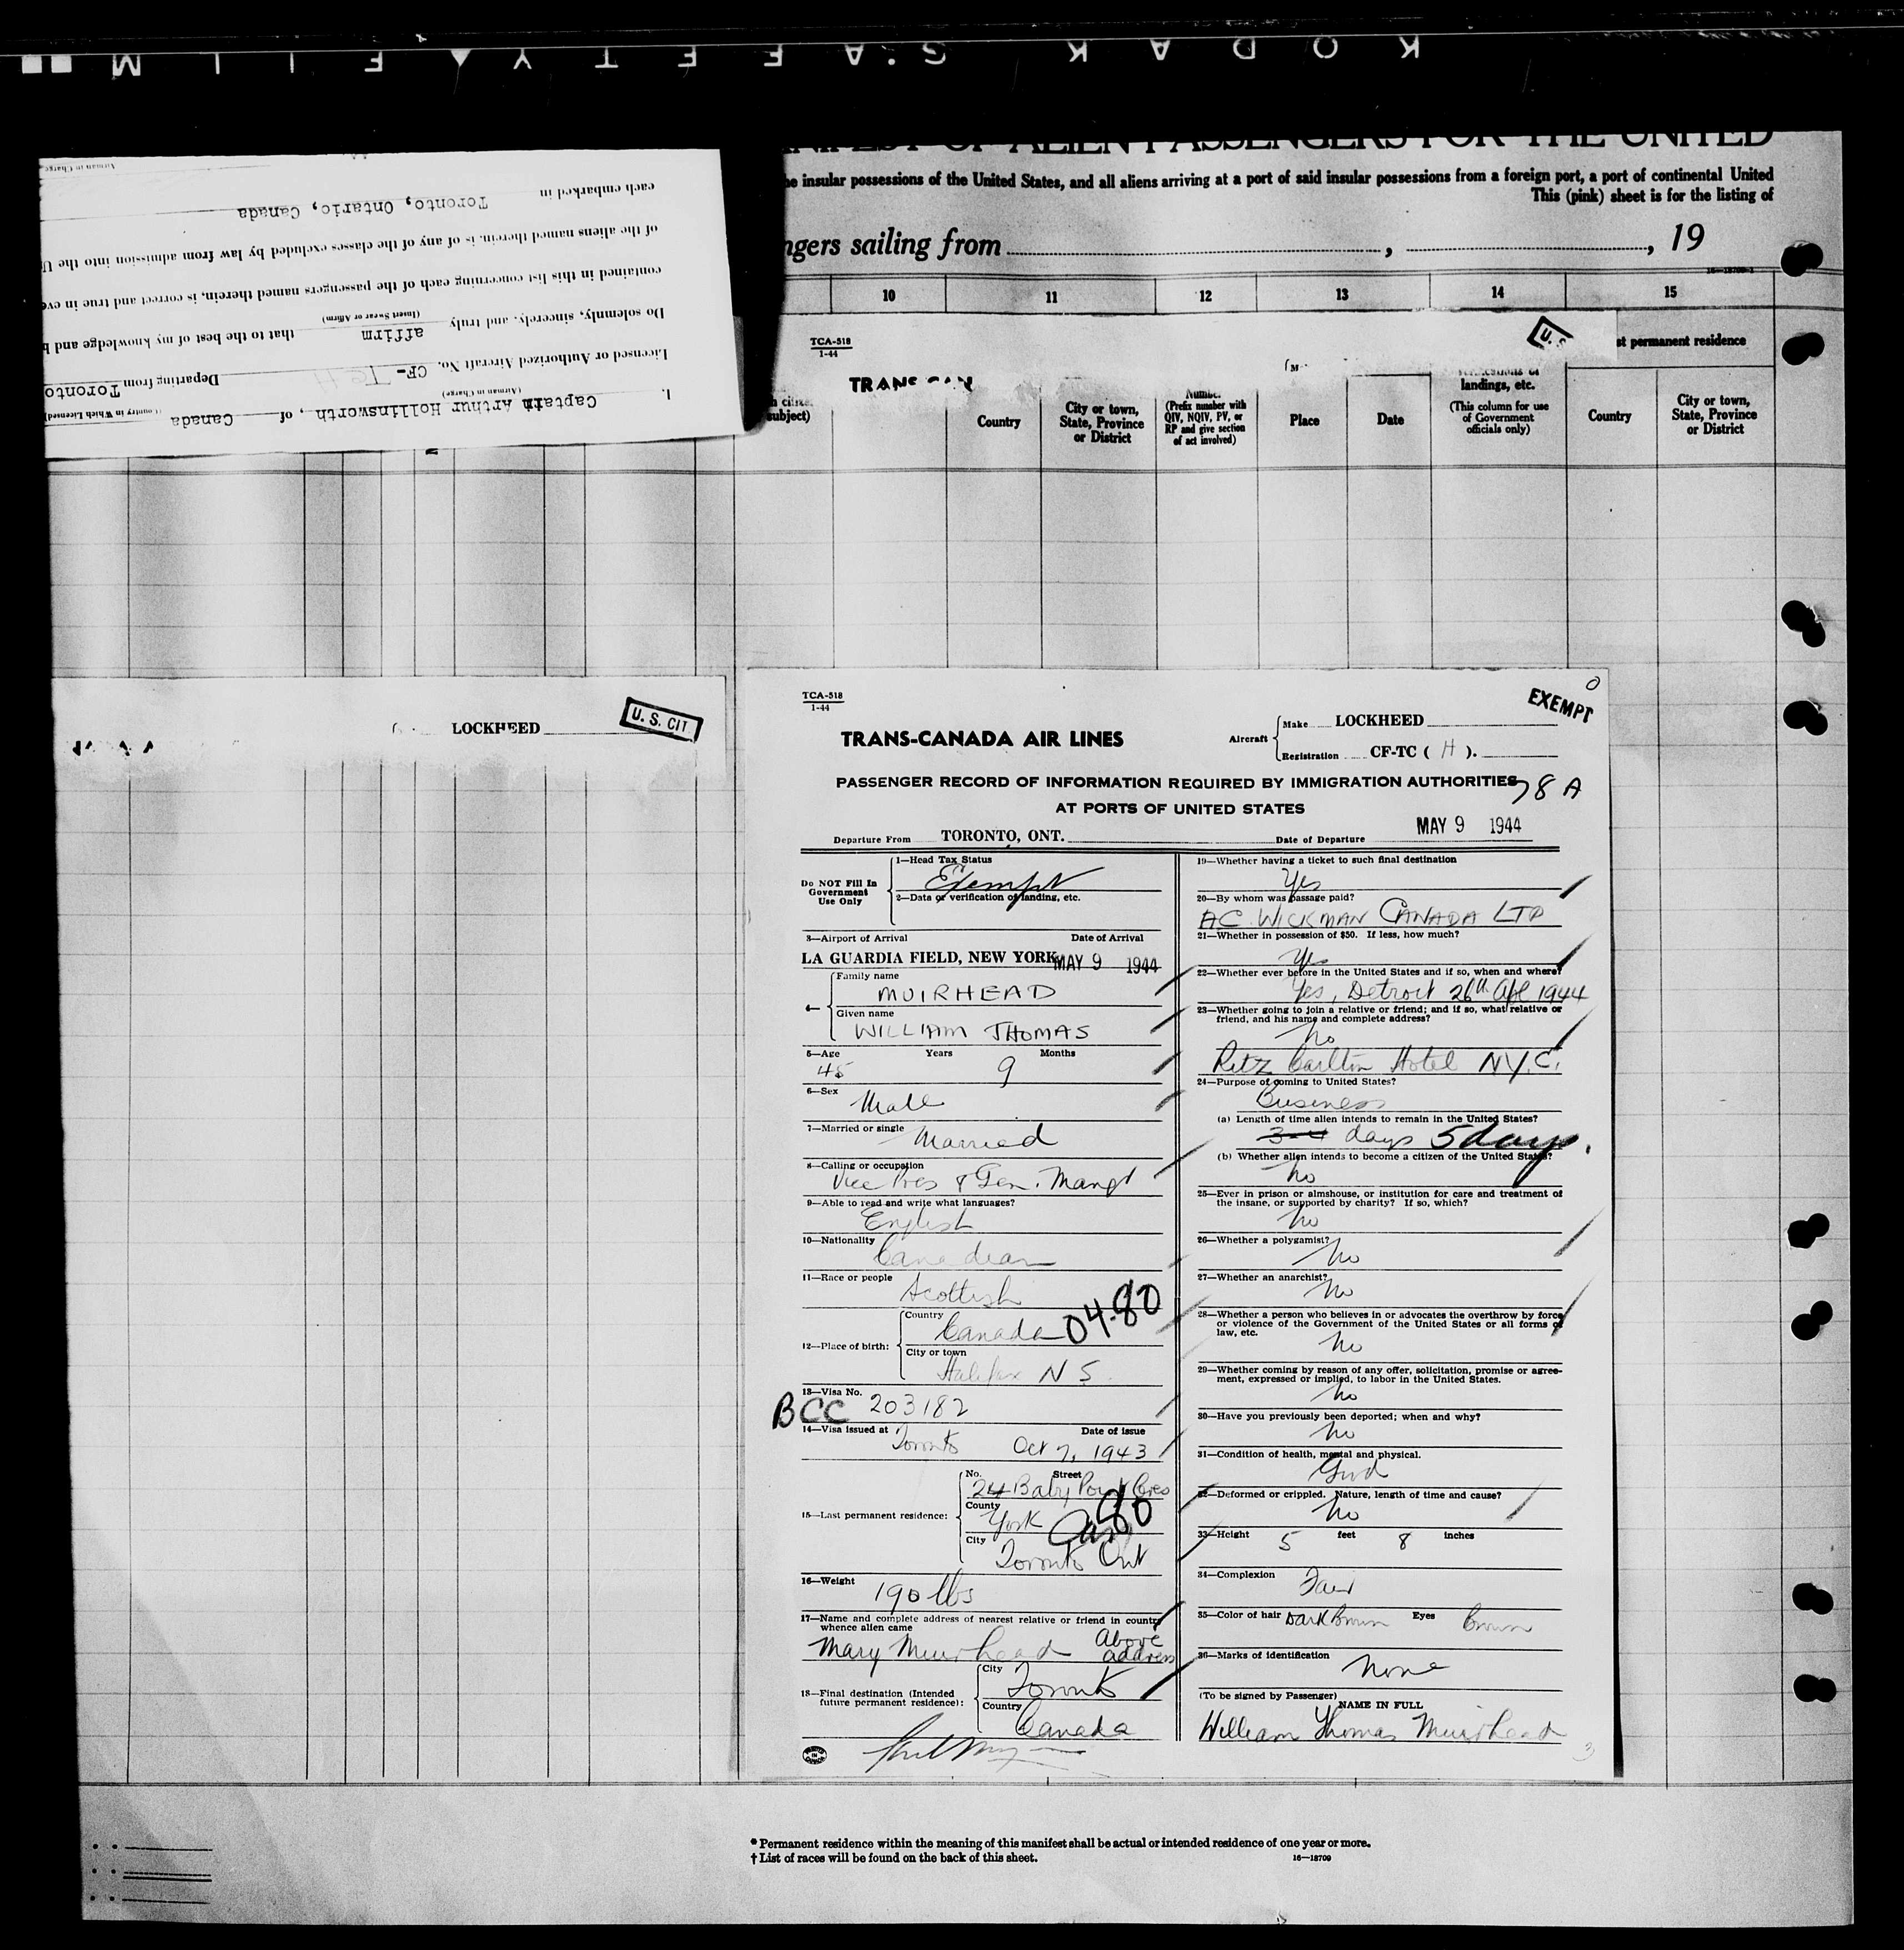 KODAK SAFETY FILM
MANIFEST OF ALIEN PASSENGERS FOR THE UNITED
he insular possessions of the United States, and all aliens arriving at a port of said insular possessions from a foreign port, a port of continental United
This (pink) sheet is for the listing of
ngers sailing from , , 19
16—18709-1
10 11 12 13 14 15
TCA-518
1-44
U. S
st permanent residence
TRANS CAN
h citizen
subject)
Country
City or town,
State, Province
or District
Number
(Prefix number with
QIV, NQIV, PV, or
RP and give section
of act involved)
Place
Date
landings, etc.
(This column for use
of Government
officials only)
Country
City or town,
State, Province
or District
I, Captain Arthur Hollinsworth, of Canada
(Airman in Charge) (Country in Which Licensed)
Licensed or Authorized Aircraft No. CF- Departing from Toronto
Do solemnly, sincerely, and truly affirm that to the best of my knowledge and b
(Insert Swear or Affirm)
contained in this list concerning each of the passengers named therein, is correct and true in eve
of the aliens named therein, is of any of the classes excluded by law from admission into the U
each embarked in Toronto, Ontario, Canada
Airman in Charge
LOCKHEED
U. S. CIT
TCA-518
1-44
EXEMPT
TRANS-CANADA AIR LINES
Aircraft
Make LOCKHEED
Registration CF-TC ( H ).
PASSENGER RECORD OF INFORMATION REQUIRED BY IMMIGRATION AUTHORITIES
78 A
AT PORTS OF UNITED STATES
Departure From TORONTO, ONT. Date of Departure MAY 9 1944
Do NOT Fill In
Government
Use Only
1—Head Tax Status
Exempt
2—Data or verification of landing, etc.
3—Airport of Arrival Date of Arrival
LA GUARDIA FIELD, NEW YORK MAY 9 1944
4—
Family name
MUIRHEAD
Given name
WILLIAM THOMAS
5—Age Years Months
45 9
6—Sex
Male
7—Married or single
Married
8—Calling or occupation
Vice Pres & Gen. Mangr
9—Able to read and write what languages?
English
10—Nationality
Canadian
11—Race or people
Scottish
12—Place of birth:
Country
Canada 04-80
City or town
Halifax N S
13—Visa No.
BCC 203182
14—Visa issued at Date of issue
Toronto Oct 7, 1943
15—Last permanent residence:
No. Street
24 Baby Point Cres
County
York
80
City
Toronto Ont
16—Weight
190 lbs
17—Name and complete address of nearest relative or friend in country
whence alien came
Mary Muirhead Above address
18—Final destination (Intended
future permanent residence):
City
Toronto
Country
Canada
19—Whether having a ticket to such final destination
Yes
20—By whom was passage paid?
AC. WICKMAN CANADA LTD
21—Whether in possession of $50. If less, how much?
Yes
22—Whether ever before in the United States and if so, when and where?
Yes, Detroit 26th Apl 1944
23—Whether going to join a relative or friend; and if so, what relative or
friend, and his name and complete address?
No
Ritz Carlton Hotel N.Y.C.
24—Purpose of coming to United States?
Business
(a) Length of time alien intends to remain in the United States?
3-4 days 5 days.
(b) Whether alien intends to become a citizen of the United States?
No
25—Ever in prison or almshouse, or institution for care and treatment of
the insane, or supported by charity? If so, which?
No
26—Whether a polygamist?
No
27—Whether an anarchist?
No
28—Whether a person who believes in or advocates the overthrow by force
or violence of the Government of the United States or all forms of
law, etc.
No
29—Whether coming by reason of any offer, solicitation, promise or agree-
ment, expressed or implied, to labor in the United States.
No
30—Have you previously been deported; when and why?
No
31—Condition of health, mental and physical.
Good
32—Deformed or crippled. Nature, length of time and cause?
No
33—Height 5 feet 8 inches
34—Complexion
Fair
35—Color of hair Dark Brown Eyes Brown
36—Marks of identification
None
(To be signed by Passenger)
NAME IN FULL
William Thomas Muirhead
3
* Permanent residence within the meaning of this manifest shall be actual or intended residence of one year or more.
† List of races will be found on the back of this sheet.
16—18709